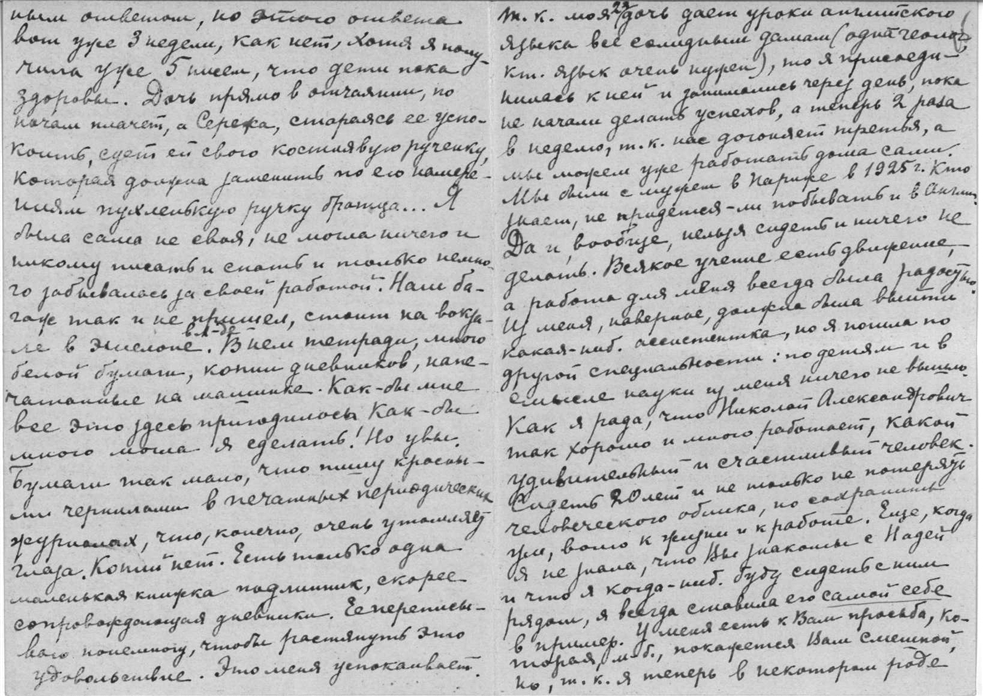 ным ответом, но этого ответа
вот уже 3 недели, как нет, хотя я полу-
чила уже 5 писем, что дети пока
здоровы. Дочь прямо в отчаянии, по
ночам плачет, а Сережа, стараясь ее успо-
коить, сует ей свою костлявую рученку,
которая должна заменить по его намере-
ниям пухленькую ручку братца... Я
была сама не своя, не могла ничего и
никому писать и спать и только немно-
го забывалась за своей работой. Наш ба-
гаж так и не пришел, стоит на вокза-
ле в эшелоне. В нем тетради, много
белой бумаги, копии дневников, напе-
чатанные на машинке. Как-бы мне
все это здесь пригодилось! Как-бы
много могла я сделать! Но увы.
Бумаги так мало, что пишу красны-
ми чернилами в печатных периодических
журналах, что, конечно, очень утомляет
глаза. Копий нет. Есть только одна
маленькая книжка подлинник, скорее
сопровождающая дневники. Ее переписы-
ваю понемногу, чтобы растянуть это
удовольствие. Это меня успокаивает.
т. к. моя 2я дочь дает уроки английского
языка все солидным дамам (одна геолог,
кт. язык очень нужен), то я присоеди-
нилась к ней и занимались через день, пока
не начали делать успехов, а теперь 2 раза
в неделю, т. к. нас догоняет третья, а
мы можем уже работать дома сами.
Мы были с мужем в Париже в 1925 г. Кто
знает, не придется-ли побывать и в Англии
Да и, вообще, нельзя сидеть и ничего не
делать. Всякое учение есть движение,
а работа для меня всегда была радостью.
Из меня, наверное, должна была выйти
какая-ниб. ассистентка, но я пошла по
другой специальности: по детям и в
смысле науки из меня ничего не вышло.
Как я рада, что Николай Александрович
так хорошо и много работает, какой
удивительный и счастливый человек.
Сидеть 20 лет и не только не потерять
человеческого облика, но сохранить
ум, волю к жизни и к работе. Еще, когда
я не знала, что Вы знакомы с Надей
и что я когда-ниб. буду сидеть с ним
рядом, я всегда ставила его самой себе
в пример. У меня есть к Вам просьба, ко-
торая, м.б., покажется Вам смешной,
но, т. к. я теперь в некотором роде,